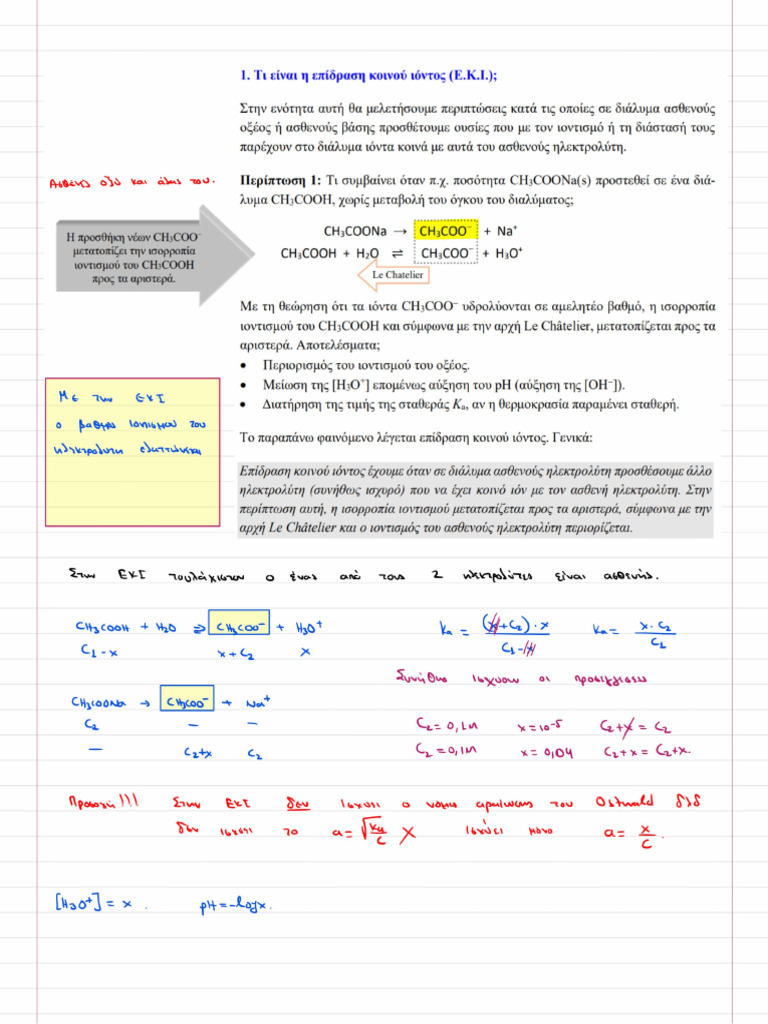 1. Τι είναι η επίδραση κοινού ιόντος (Ε.Κ.Ι.);
Στην ενότητα αυτή θα μελετήσουμε περιπτώσεις κατά τις οποίες σε διάλυμα ασθενούς
οξέος ή ασθενούς βάσης προσθέτουμε ουσίες που με τον ιοντισμό ή τη διάστασή τους
παρέχουν στο διάλυμα ιόντα κοινά με αυτά του ασθενούς ηλεκτρολύτη.
Ασθενές οξύ και άλας του.
Περίπτωση 1: Τι συμβαίνει όταν π.χ. ποσότητα CH₃COONa(s) προστεθεί σε ένα διά-
λυμα CH₃COOH, χωρίς μεταβολή του όγκου του διαλύματος;
Η προσθήκη νέων CH₃COO⁻
μετατοπίζει την ισορροπία
ιοντισμού του CH₃COOH
προς τα αριστερά.
CH₃COONa → CH₃COO⁻ + Na⁺
CH₃COOH + H₂O ⇌ CH₃COO⁻ + H₃O⁺
Le Chatelier
Με τη θεώρηση ότι τα ιόντα CH₃COO⁻ υδρολύονται σε αμελητέο βαθμό, η ισορροπία
ιοντισμού του CH₃COOH και σύμφωνα με την αρχή Le Châtelier, μετατοπίζεται προς τα
αριστερά. Αποτελέσματα;
• Περιορισμός του ιοντισμού του οξέος.
• Μείωση της [H₃O⁺] επομένως αύξηση του pH (αύξηση της [OH⁻]).
• Διατήρηση της τιμής της σταθεράς Kₐ, αν η θερμοκρασία παραμένει σταθερή.
Με την ΕΚΙ
ο βαθμος ιοντισμου του
ηλεκτρολυτη ελαττώνεται
Το παραπάνω φαινόμενο λέγεται επίδραση κοινού ιόντος. Γενικά:
Επίδραση κοινού ιόντος έχουμε όταν σε διάλυμα ασθενούς ηλεκτρολύτη προσθέσουμε άλλο
ηλεκτρολύτη (συνήθως ισχυρό) που να έχει κοινό ιόν με τον ασθενή ηλεκτρολύτη. Στην
περίπτωση αυτή, η ισορροπία ιοντισμού μετατοπίζεται προς τα αριστερά, σύμφωνα με την
αρχή Le Châtelier και ο ιοντισμός του ασθενούς ηλεκτρολύτη περιορίζεται.
Στην ΕΚΙ τουλάχιστον ο ένας από τους 2 ηλεκτρολύτες είναι ασθενής.
CH₃COOH + H₂O ⇌ CH₃COO⁻ + H₃O⁺
C₁-x x+C₂ x
Ka = (x+C₂)·x / C₁-x Ka = x·C₂ / C₁
Συνήθως ισχυουν οι προσεγγισεις
CH₃COONa → CH₃COO⁻ + Na⁺
C₂ — —
— C₂+x C₂
C₂=0,1M x=10⁻⁵ C₂+x = C₂
C₂=0,1M x=0,04 C₂+x = C₂+x.
Προσοχή!!! Στην ΕΚΙ δεν ισχυει ο νομος αραίωσης του Ostwald δλδ
δεν ισχυει το a=√(Ka/C) X ισχύει μονο a= x/C.
[H₃O⁺] = x. pH=-logx.